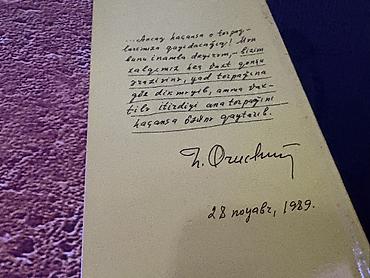 ...Ancaq haçansa o torpaq-
larımıza qayıdacağıq! Mən
bunu inamla deyirəm, - bizim
xalqımız heç vaxt qonşu
ərazisinə, yad torpağına
göz dikməyib, amma vax-
tilə itirdiyi ana torpağını
haçansa özünə qaytarıb.
28 noyabr, 1989.